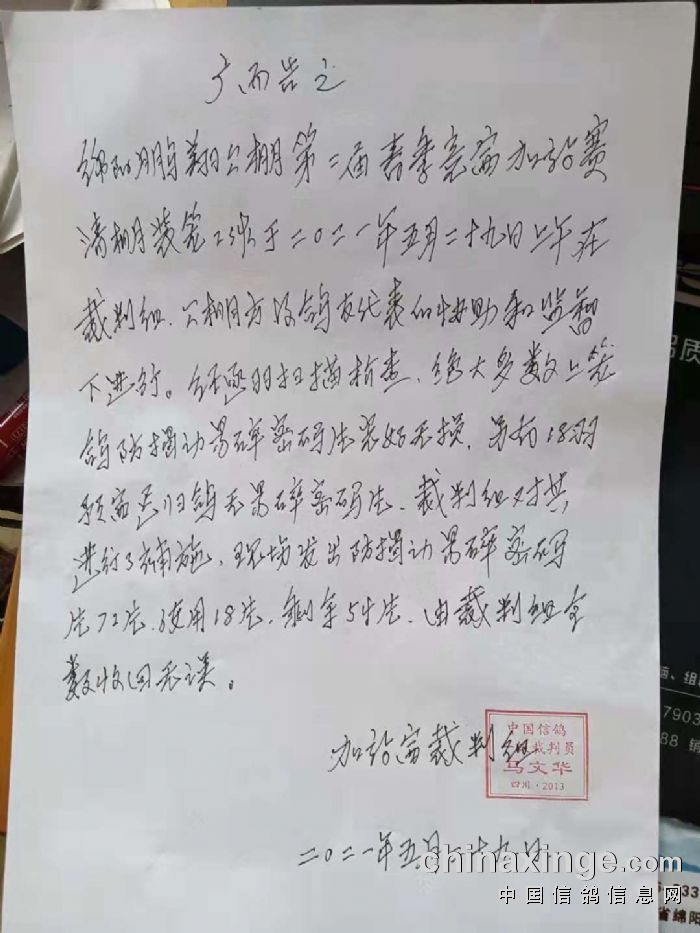 绵阳鹏翔公棚第二届春季竞翔加站赛
清棚装笼工作于二〇二一年五月二十九日上午在
裁判组、公棚方及鸽友代表的协助和监督
下进行。经逐羽扫描检查,绝大多数上笼
鸽防挪动易碎密码片完好无损,另有18羽
预赛迟归鸽无易碎密码片,裁判组对其
进行了补施,现场发出防挪动易碎密码
片72片,使用18片,剩余54片,由裁判组全
数收回无误。
加站赛裁判组
中国信鸽
裁判员
马文华
四川·2013
二〇二一年五月二十九日
chinaxinge.com
中国信鸽信息网
质
脑、组
7903
88 销
省绵阳